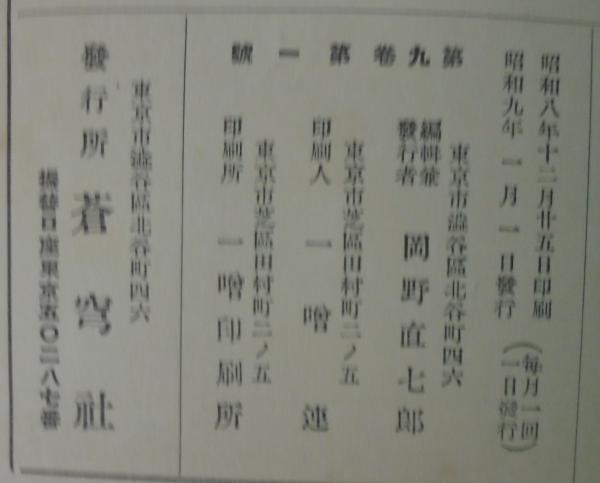 昭和八年十二月廿五日印刷
昭和九年一月一日發行
(毎月一回一日發行)
第九卷第一號
東京市澁谷區北谷町四六
編輯兼發行者 岡野直七郎
東京市芝區田村町二ノ五
印刷人 一噌連
東京市芝區田村町二ノ五
印刷所 一噌印刷所
東京市澁谷區北谷町四六
發行所 蒼穹社
振替口座東京五〇二八七番